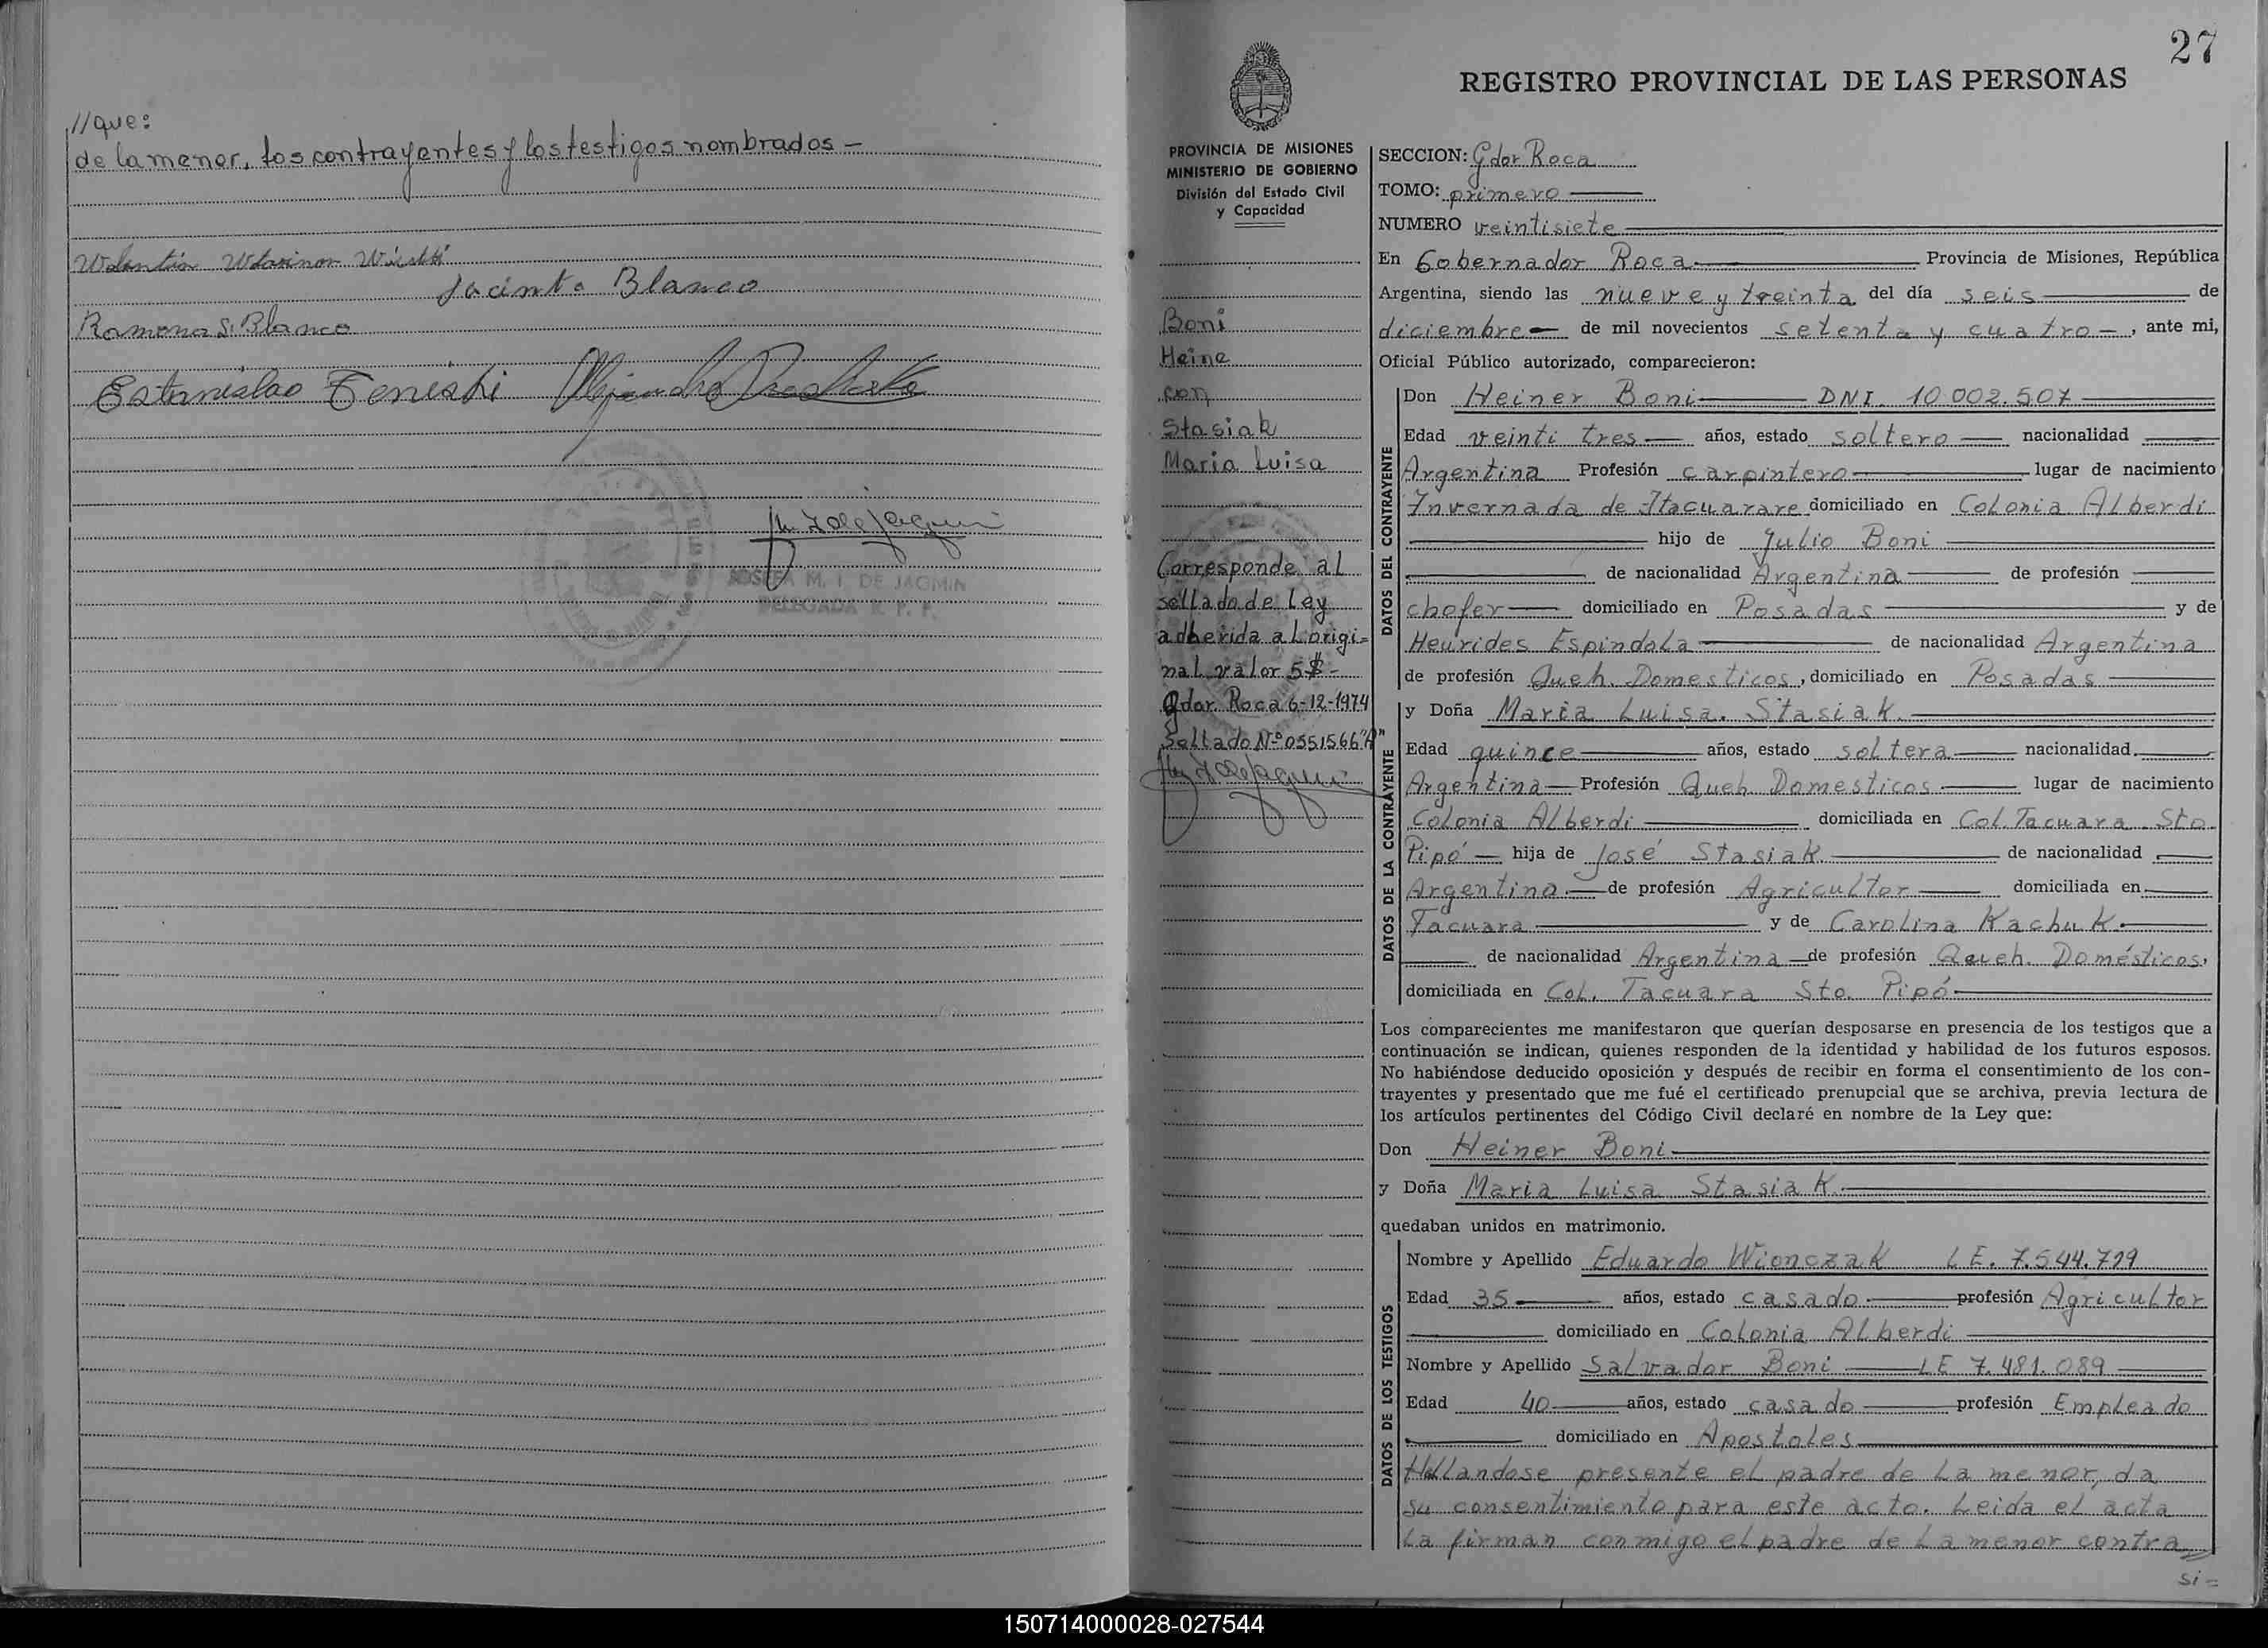 //que:
de la menor, los contrayentes y los testigos nombrados –
Jacinto Blanco
Ramona S. Blanco
Estanislao
JOSEFA M. I. DE JAGMIN
DELEGADA R. P. P.
27
REGISTRO PROVINCIAL DE LAS PERSONAS
PROVINCIA DE MISIONES
MINISTERIO DE GOBIERNO
División del Estado Civil
y Capacidad
Boni
Heine
con
Stasiak
Maria Luisa
Corresponde al
sellado de ley
adherida al origi=
nal valor 5$-
Gdor. Roca 6-12-1974
Sellado Nº 0551566"A"
SECCION: Gdor Roca
TOMO: primero
NUMERO veintisiete
En Gobernador Roca Provincia de Misiones, República
Argentina, siendo las nueve y treinta del día seis de
diciembre de mil novecientos setenta y cuatro –, ante mi,
Oficial Público autorizado, comparecieron:
DATOS DEL CONTRAYENTE
Don Heiner Boni DNI. 10.002.507
Edad veinti tres años, estado soltero nacionalidad
Argentina Profesión carpintero lugar de nacimiento
Invernada de Itacuarare domiciliado en Colonia Alberdi
hijo de Julio Boni
de nacionalidad Argentina de profesión
chofer domiciliado en Posadas y de
Heurides Espindola de nacionalidad Argentina
de profesión Queh. Domesticos, domiciliado en Posadas
DATOS DE LA CONTRAYENTE
y Doña Maria Luisa. Stasiak.
Edad quince años, estado soltera nacionalidad.
Argentina Profesión Queh. Domesticos lugar de nacimiento
Colonia Alberdi domiciliada en Col. Tacuara. Sto.
Pipó hija de José Stasiak. de nacionalidad
Argentina. de profesión Agricultor domiciliada en
Tacuara y de Carolina Kachuk.
de nacionalidad Argentina de profesión Queh. Domésticos,
domiciliada en Col. Tacuara Sto. Pipó
Los comparecientes me manifestaron que querían desposarse en presencia de los testigos que a
continuación se indican, quienes responden de la identidad y habilidad de los futuros esposos.
No habiéndose deducido oposición y después de recibir en forma el consentimiento de los con-
trayentes y presentado que me fué el certificado prenupcial que se archiva, previa lectura de
los artículos pertinentes del Código Civil declaré en nombre de la Ley que:
Don Heiner Boni
y Doña Maria Luisa Stasiak.
quedaban unidos en matrimonio.
DATOS DE LOS TESTIGOS
Nombre y Apellido Eduardo Wionczak LE. 7.544.719
Edad 35 años, estado casado profesión Agricultor
domiciliado en Colonia Alberdi
Nombre y Apellido Salvador Boni LE 7.481.089
Edad 40 años, estado casado profesión Empleado
domiciliado en Apostoles
Hallandose presente el padre de la menor, da
su consentimiento para este acto. Leida el acta
la firman conmigo el padre de la menor contra
si=
150714000028-027544